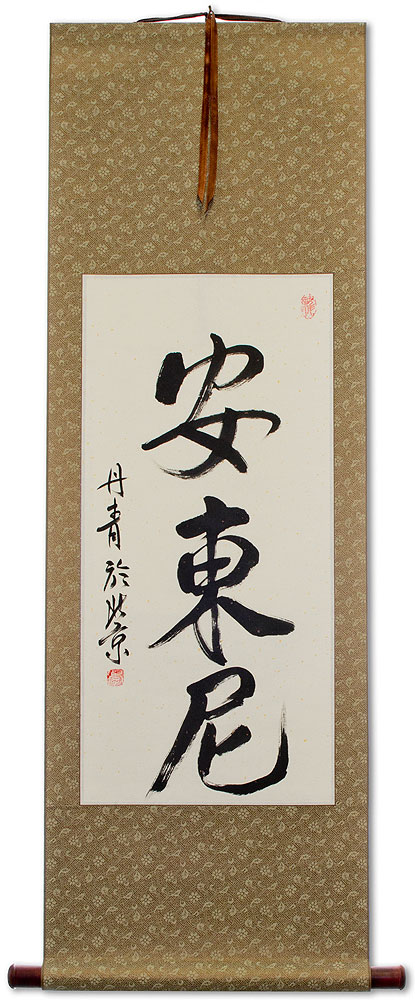 安東尼
丹青於北京